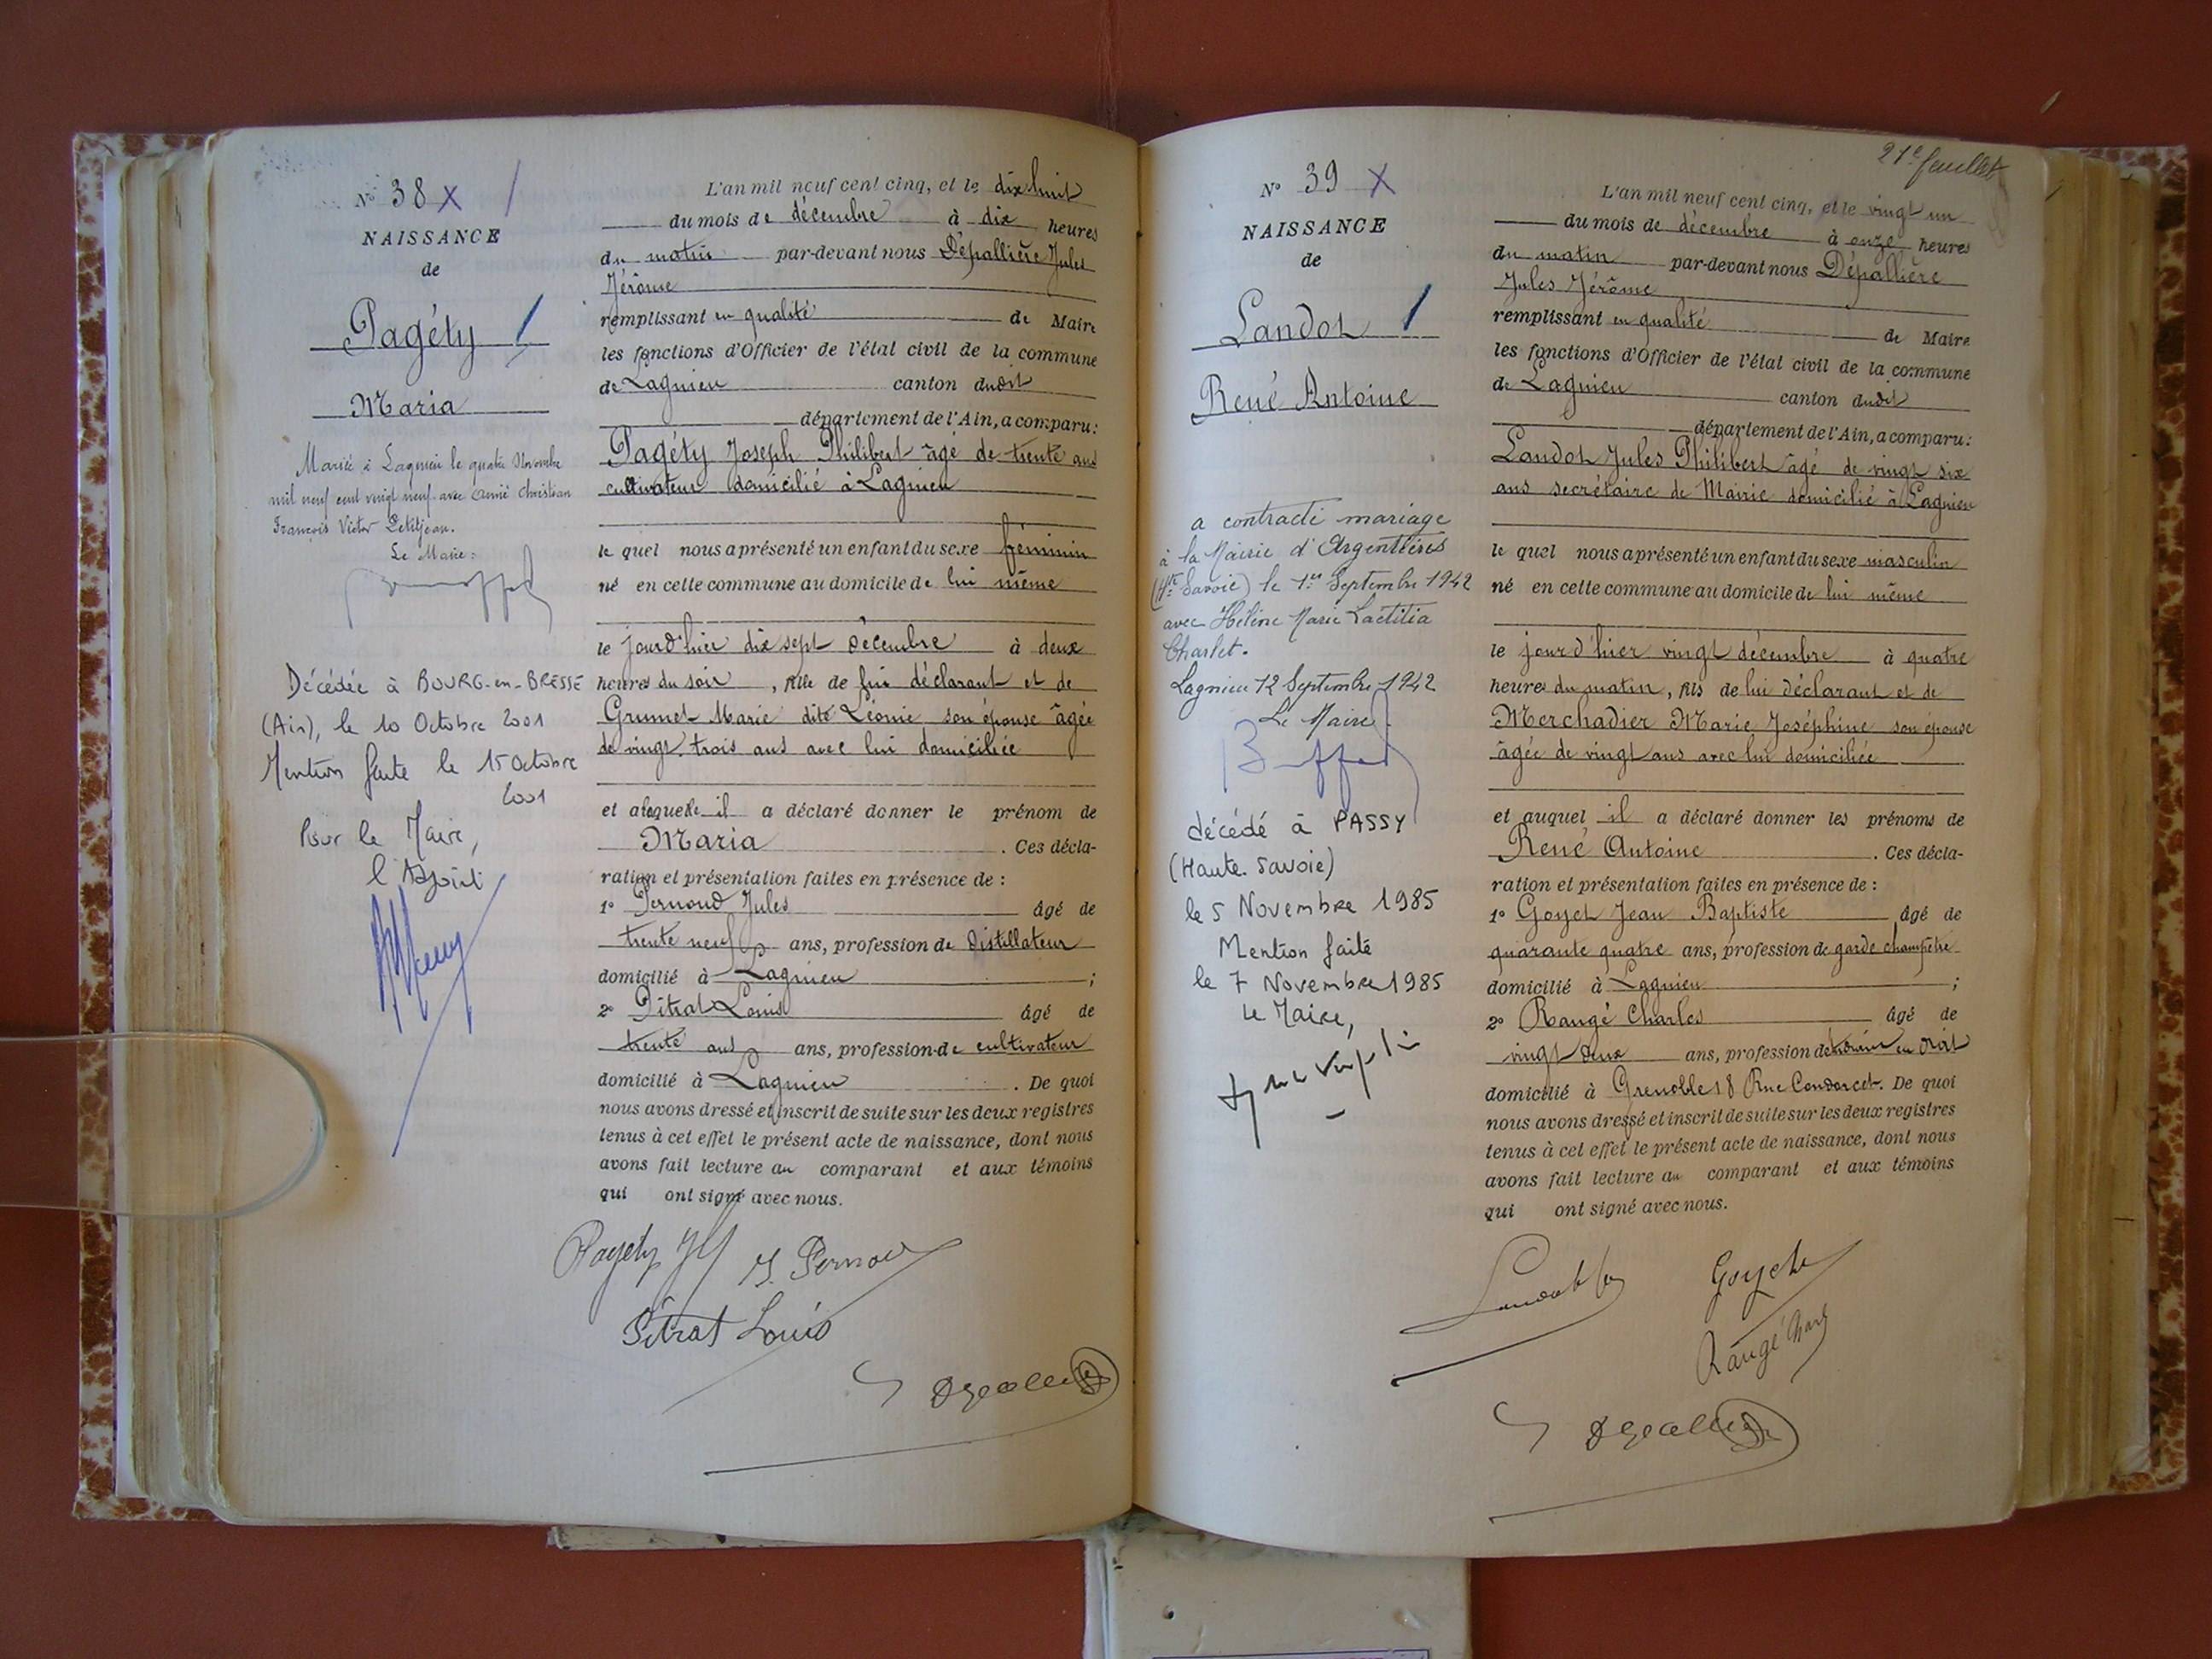 N° 38 X
NAISSANCE
de
Pagéty
Maria
Mariée à Lagnieu le quatre Novembre
mil neuf cent vingt neuf avec Aimé Christian
François Victor Petitjean.
Le Maire :
Décédée à BOURG-en-BRESSE
(Ain), le 10 Octobre 2001
Mention faite le 15 Octobre
2001
Pour le Maire,
l'Adjoint
L'an mil neuf cent cinq, et le dix huit
du mois de décembre à dix heures
du matin par-devant nous Dépallière Jules
Jérôme
remplissant en qualité de Maire
les fonctions d'Officier de l'état civil de la commune
de Lagnieu canton dudit
département de l'Ain, a comparu :
Pagéty Joseph Philibert âgé de trente ans
cultivateur domicilié à Lagnieu
le quel nous a présenté un enfant du sexe féminin
né en cette commune au domicile de lui même
le jourd'hier dix sept décembre à deux
heures du soir, fille de lui déclarant et de
Grumet Marie dite Léonie son épouse âgée
de vingt trois ans avec lui domiciliée
et a laquelle il a déclaré donner le prénom de
Maria. Ces décla-
ration et présentation faites en présence de :
1° Pernoud Jules âgé de
trente neuf ans, profession de distillateur
domicilié à Lagnieu ;
2° Pitrat Louis âgé de
trente ans ans, profession de cultivateur
domicilié à Lagnieu. De quoi
nous avons dressé et inscrit de suite sur les deux registres
tenus à cet effet le présent acte de naissance, dont nous
avons fait lecture au comparant et aux témoins
qui ont signé avec nous.
Pagéty J. Pernoud
Pitrat Louis
21e feuillet
N° 39 X
NAISSANCE
de
Landot
René Antoine
a contracté mariage
à la Mairie d'Argentières
(Hte Savoie) le 1er Septembre 1942
avec Hélène Marie Laëtitia
Charlet.
Lagnieu 12 Septembre 1942
Le Maire
décédé à PASSY
(Haute-Savoie)
le 5 Novembre 1985
Mention faite
le 7 Novembre 1985
Le Maire,
L'an mil neuf cent cinq, et le vingt un
du mois de décembre à onze heures
du matin par-devant nous Dépallière
Jules Jérôme
remplissant en qualité de Maire
les fonctions d'Officier de l'état civil de la commune
de Lagnieu canton dudit
département de l'Ain, a comparu :
Landot Jules Philibert âgé de vingt six
ans secrétaire de Mairie domicilié à Lagnieu
le quel nous a présenté un enfant du sexe masculin
né en cette commune au domicile de lui même
le jourd'hier vingt décembre à quatre
heures du matin, fils de lui déclarant et de
Merchadier Marie Joséphine son épouse
âgée de vingt ans avec lui domiciliée
et auquel il a déclaré donner les prénoms de
René Antoine. Ces décla-
ration et présentation faites en présence de :
1° Goyet Jean Baptiste âgé de
quarante quatre ans, profession de garde champêtre
domicilié à Lagnieu ;
2° Rangé Charles âgé de
vingt deux ans, profession de en droit
domicilié à Grenoble 18 Rue Condorcet. De quoi
nous avons dressé et inscrit de suite sur les deux registres
tenus à cet effet le présent acte de naissance, dont nous
avons fait lecture au comparant et aux témoins
qui ont signé avec nous.
Landot Goyet
Rangé Charles